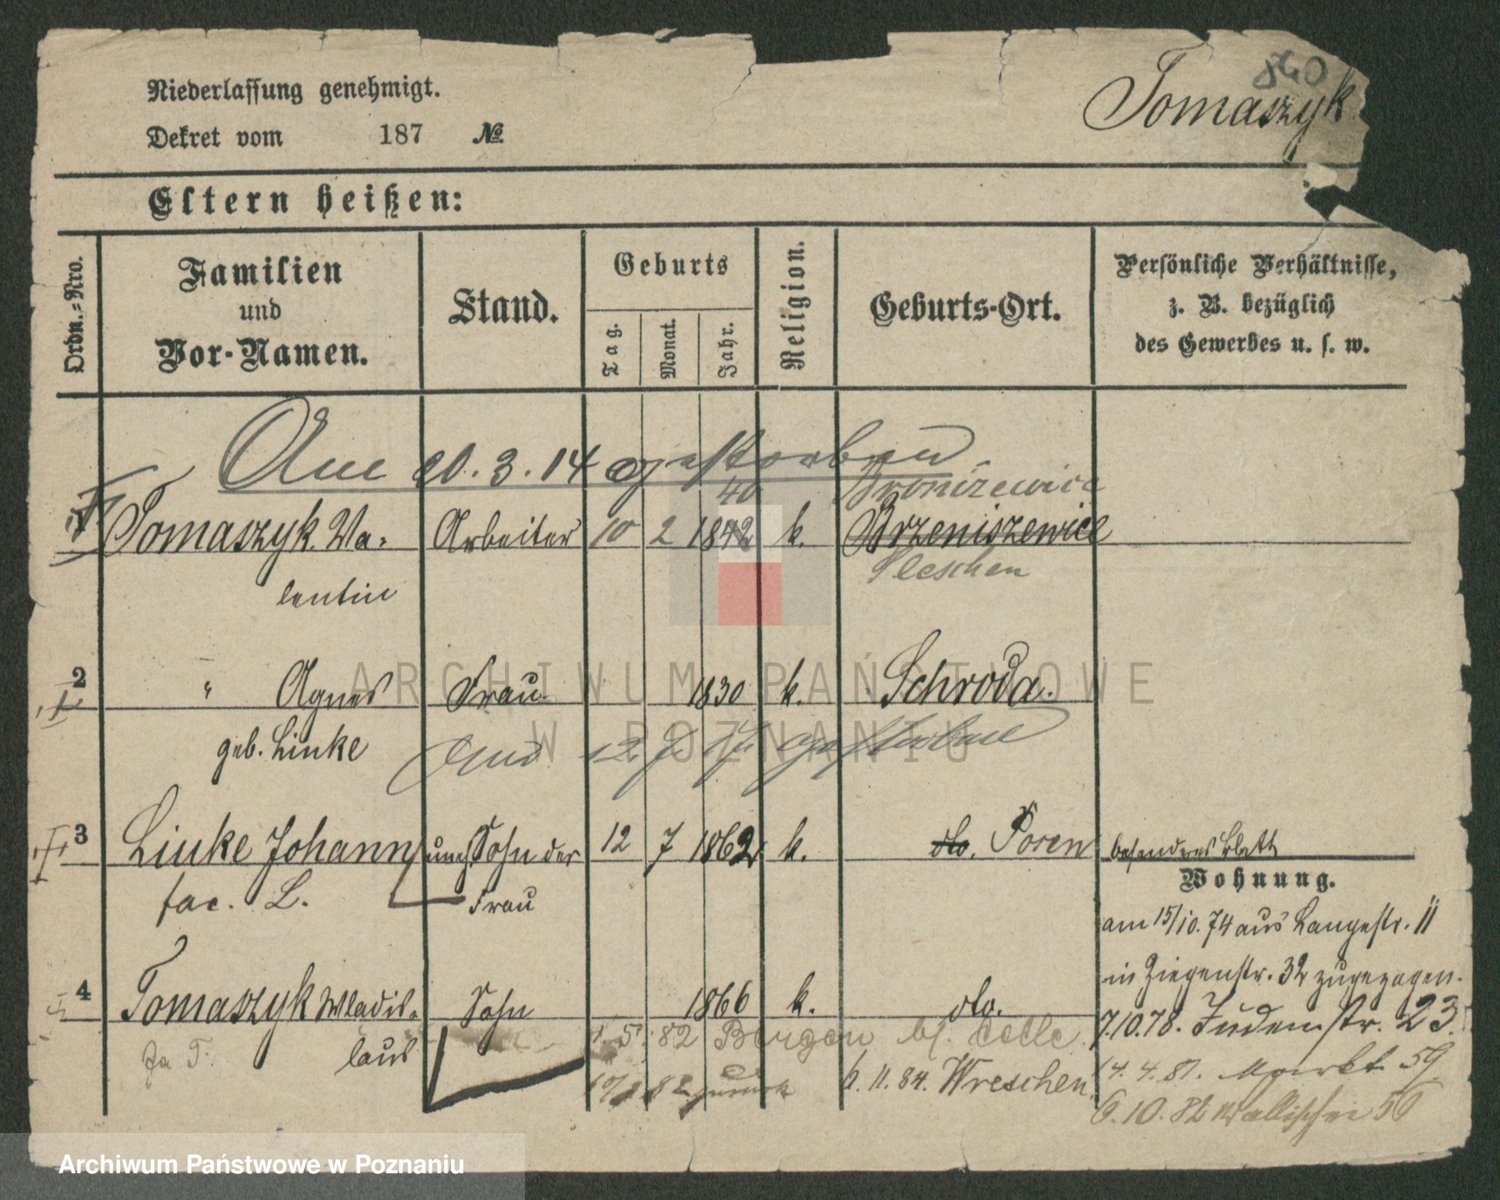 840
Tomaszyk
Niederlassung genehmigt.
Dekret vom 187 №
Eltern heißen:
Ordn.-Nro.
Familien
und
Vor-Namen.
Stand.
Geburts
Tag.
Monat.
Jahr.
Religion.
Geburts-Ort.
Persönliche Verhältnisse,
z. B. bezüglich
des Gewerbes u. s. w.
Am 20.3.14 gestorben
40 Broniszewice
1 Tomaszyk Va- Arbeiter 10 2 1842 k. Brzeniszewice
lentin Pleschen
2 " Agnes Frau 1830 k. Schroda.
geb. Linke gestorben
3 Linke Johann unehl Sohn der 12 7 1862 k. do. Posen besonderes Blatt
fac. L. Frau
Wohnung.
am 15/10.74 aus Langestr. 11
in Ziegenstr. 32 zugezogen.
4 Tomaszyk Wladis- Sohn 1866 k. do.
laus
7.10.78. Judenstr. 23.
5. 82 Bergen b/. Celle.
82 zurück 6.11.84. Wreschen
4.4.81. Markt 59
6.10.82 Wallischei 56
ARCHIWUM PAŃSTWOWE
W POZNANIU
Archiwum Państwowe w Poznaniu